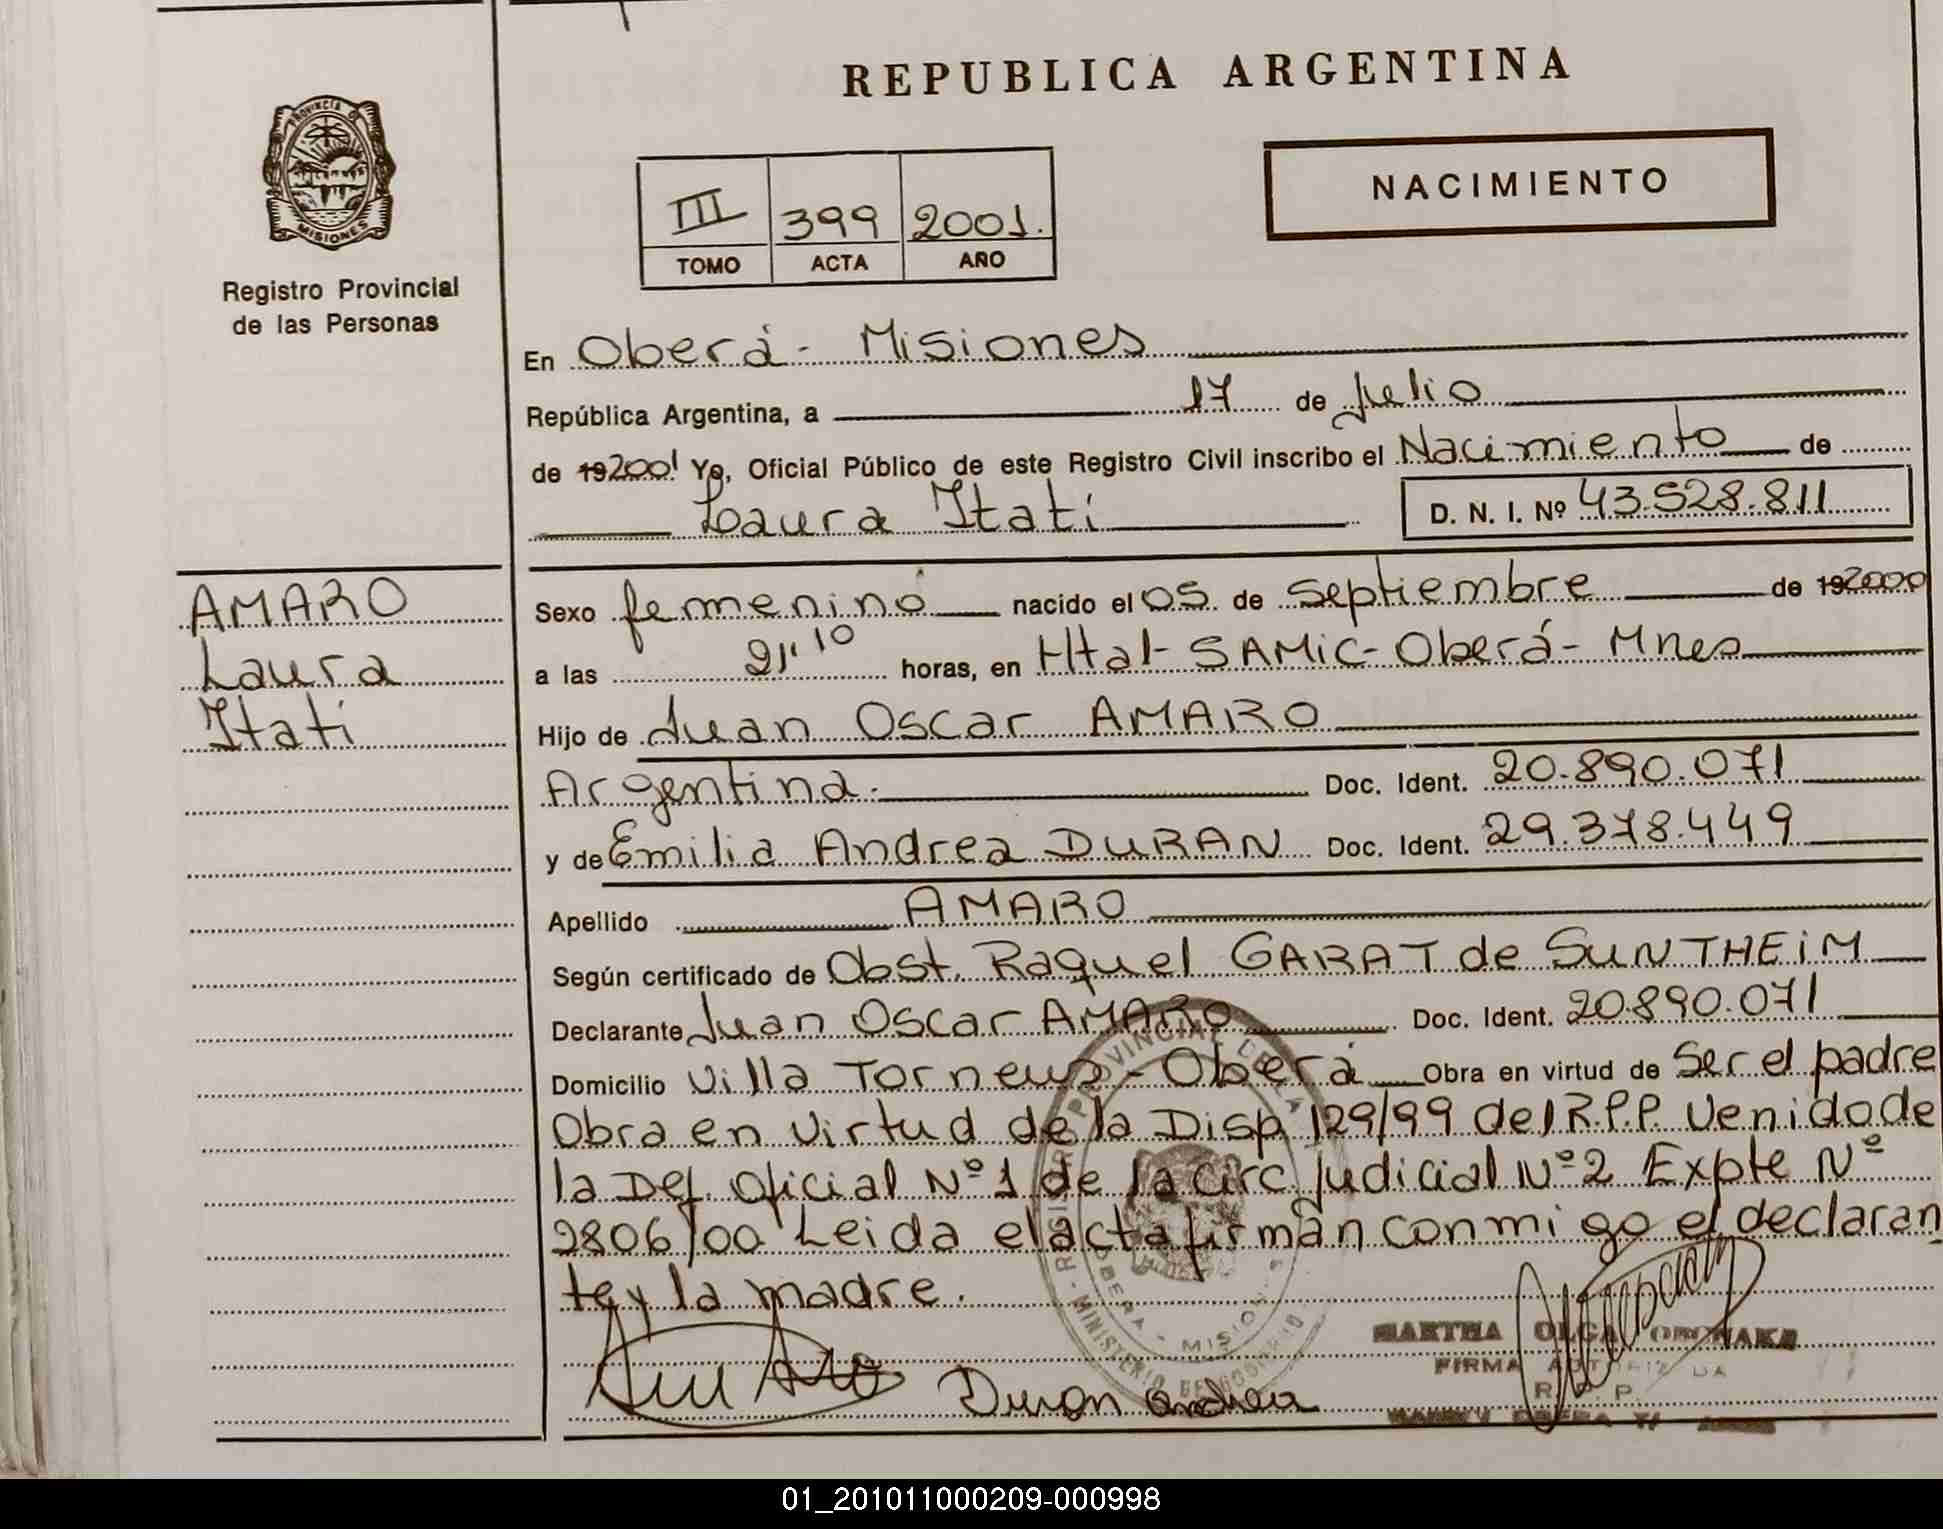 REPUBLICA ARGENTINA
PROVINCIA DE
MISIONES
Registro Provincial
de las Personas
NACIMIENTO
III 399 2001.
TOMO ACTA AÑO
En Oberá - Misiones
República Argentina, a 17 de Julio
de 192001 Yo, Oficial Público de este Registro Civil inscribo el Nacimiento de
Laura Itatí
D. N. I. Nº 43.528.811
AMARO
Laura
Itatí
Sexo femenino nacido el 05 de Septiembre de 192000
a las 21'10 horas, en Htal - SAMIC - Oberá - Mnes
Hijo de Juan Oscar AMARO
Argentina. Doc. Ident. 20.890.071
y de Emilia Andrea DURAN Doc. Ident. 29.378.449
Apellido AMARO
Según certificado de Obst. Raquel GARAT de SUNTHEIM
Declarante Juan Oscar AMARO Doc. Ident. 20.890.071
Domicilio Villa Torneus - Oberá Obra en virtud de Ser el padre
Obra en virtud de la Disp 129/99 del R.P.P. Venido de
la Def. Oficial Nº 1 de la Circ. Judicial Nº 2 Expte Nº
2806/00 Leida el acta firman conmigo el declaran
te y la madre.
MARTHA OLGA
FIRMA AUTORIZADA
R. P. P.
Duran Andrea
01_201011000209-000998